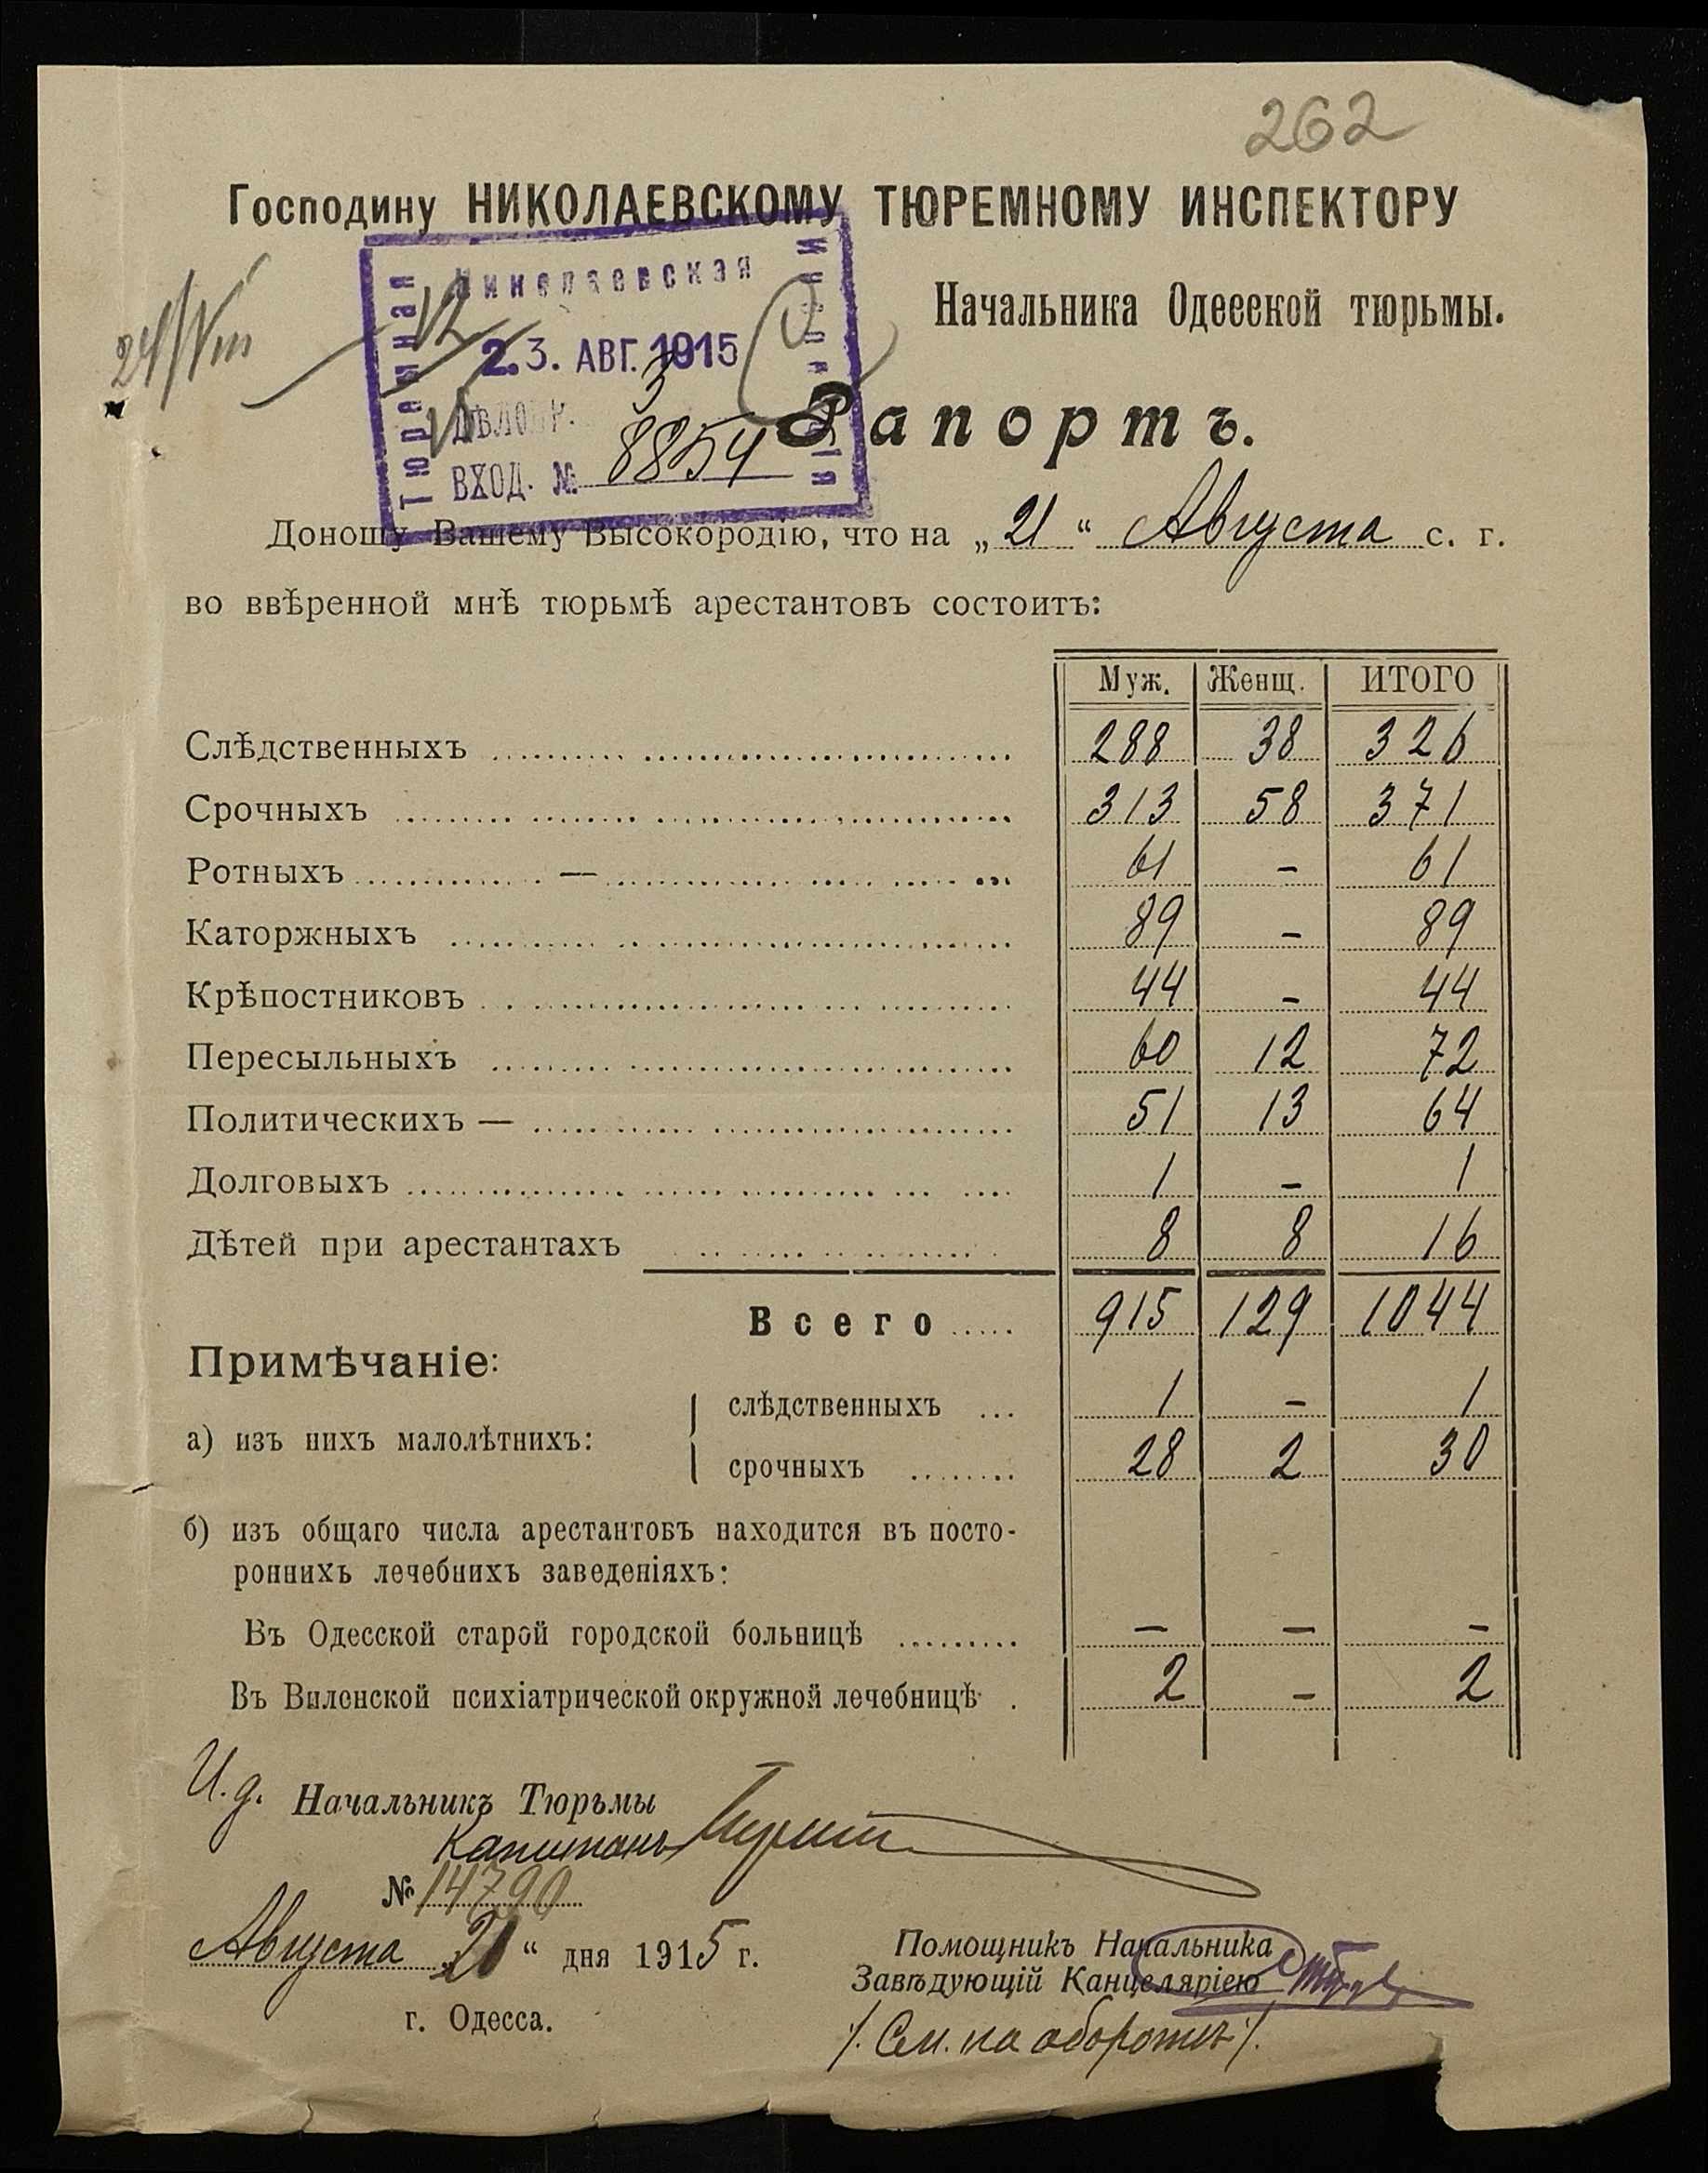 262
Господину НИКОЛАЕВСКОМУ ТЮРЕМНОМУ ИНСПЕКТОРУ
Начальника Одесской тюрьмы.
24/VIII
Николаевская
Тюремная
2.3. АВГ. 1915
3
ВХОД. № 8854
Рапортъ.
Доношу Вашему Высокородію, что на „21“ Августа с. г.
во ввѣренной мнѣ тюрьмѣ арестантовъ состоитъ:
Муж. Женщ. ИТОГО
Слѣдственныхъ 288 38 326
Срочныхъ 313 58 371
Ротныхъ — 61 - 61
Каторжныхъ 89 - 89
Крѣпостниковъ 44 - 44
Пересыльныхъ 60 12 72
Политическихъ — 51 13 64
Долговыхъ 1 - 1
Дѣтей при арестантахъ 8 8 16
Всего 915 129 1044
Примѣчаніе:
а) изъ нихъ малолѣтнихъ:
слѣдственныхъ 1 - 1
срочныхъ 28 2 30
б) изъ общаго числа арестантовъ находится въ посто-
роннихъ лечебнихъ заведеніяхъ:
Въ Одесской старой городской больницѣ - - -
Въ Виленской психіатрической окружной лечебницѣ 2 - 2
И.д. Начальникъ Тюрьмы
Капитанъ
№ 14790
Августа 21“ дня 1915 г.
г. Одесса.
Помощникъ Начальника
Завѣдующій Канцеляріею
/. См. на оборотѣ /.